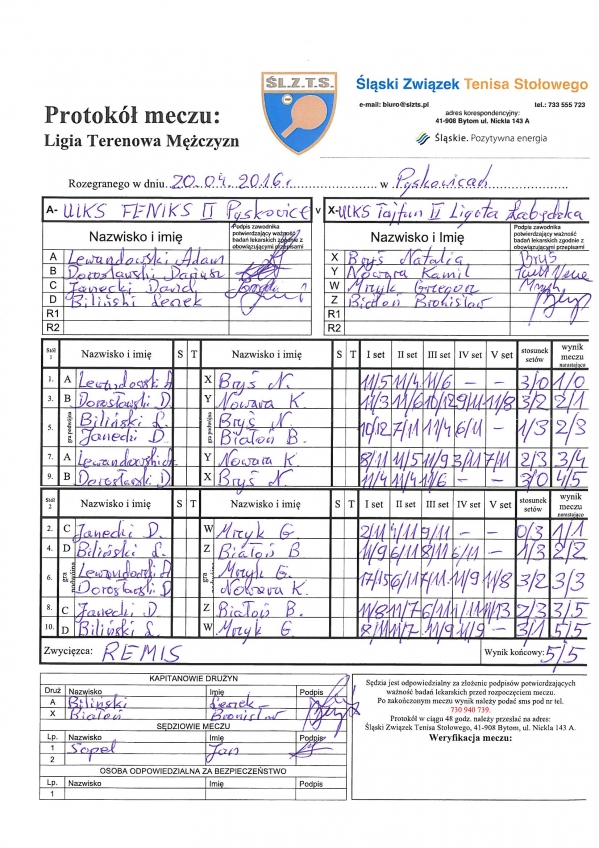 ŚL.Z.T.S.
Śląski Związek Tenisa Stołowego
e-mail: biuro@slzts.pl tel.: 733 555 723
adres korespondencyjny:
41-908 Bytom ul. Nickla 143 A
Śląskie. Pozytywna energia
Protokół meczu:
Ligia Terenowa Mężczyzn
Rozegranego w dniu 20.04.2016r. w Pyskowicach
A- UKS FENIKS II Pyskowice v X- UKS Tajfun II Ligota Łabędzka
Nazwisko i Imię Podpis zawodnika potwierdzający ważność badań lekarskich zgodnie z obowiązującymi przepisami Nazwisko i Imię Podpis zawodnika potwierdzający ważność badań lekarskich zgodnie z obowiązującymi przepisami
A Lewandowski Adam X Bryś Natalia Bryś
B Dorosławski Dariusz Y Nowara Kamil
C Janecki Dawid W Mrzyk Grzegorz
D Biliński Leszek Z Białoń Bronisław
R1 R1
R2 R2
Stół 1 Nazwisko i imię S T Nazwisko i imię S T I set II set III set IV set V set stosunek setów wynik meczu narastająco
1. A Lewandowski A. X Bryś N. 11/5 11/4 11/6 – – 3/0 1/0
3. B Dorosławski D. Y Nowara K. 11/6 11/8 3/2 2/1
5. gra podwójna Biliński L. Bryś N. 10/12 7/11 11/4 6/11 – 1/3 2/3
Janecki D. Białoń B.
7. A Lewandowski A. Y Nowara K. 8/11 11/5 11/9 3/11 7/11 2/3 3/4
9. B Dorosławski D. X Bryś N. 11/4 11/4 11/6 – – 3/0 4/5
Stół 2 Nazwisko i imię S T Nazwisko i imię S T I set II set III set IV set V set stosunek setów wynik meczu narastająco
2. C Janecki D. W Mrzyk G. 2/11 4/11 9/11 – – 0/3 1/1
4. D Biliński L. Z Białoń B 11/9 6/11 8/11 6/11 – 1/3 2/2
6. gra podwójna Lewandowski A. Mrzyk G. 17/15 6/11 11/9 11/8 3/2 3/3
Dorosławski D. Nowara K.
8. C Janecki D. Z Białoń B. 11/8 11/7 6/11 11/13 2/3 3/5
10. D Biliński L. W Mrzyk G. 8/11 11/7 11/9 11/9 – 3/1 5/5
Zwycięzca: REMIS Wynik końcowy: 5/5
KAPITANOWIE DRUŻYN
Druż Nazwisko Imię Podpis
A Biliński Leszek
X Białoń Bronisław
SĘDZIOWIE MECZU
Lp. Nazwisko Imię Podpis
1 Sopel Jan
2
OSOBA ODPOWIEDZIALNA ZA BEZPIECZEŃSTWO
Lp. Nazwisko Imię Podpis
1
Sędzia jest odpowiedzialny za złożenie podpisów potwierdzających
ważność badań lekarskich przed rozpoczęciem meczu.
Po zakończonym meczu wynik należy podać sms pod nr tel.
730 940 739.
Protokół w ciągu 48 godz. należy przesłać na adres:
Śląski Związek Tenisa Stołowego, 41-908 Bytom, ul. Nickla 143 A.
Weryfikacja meczu: